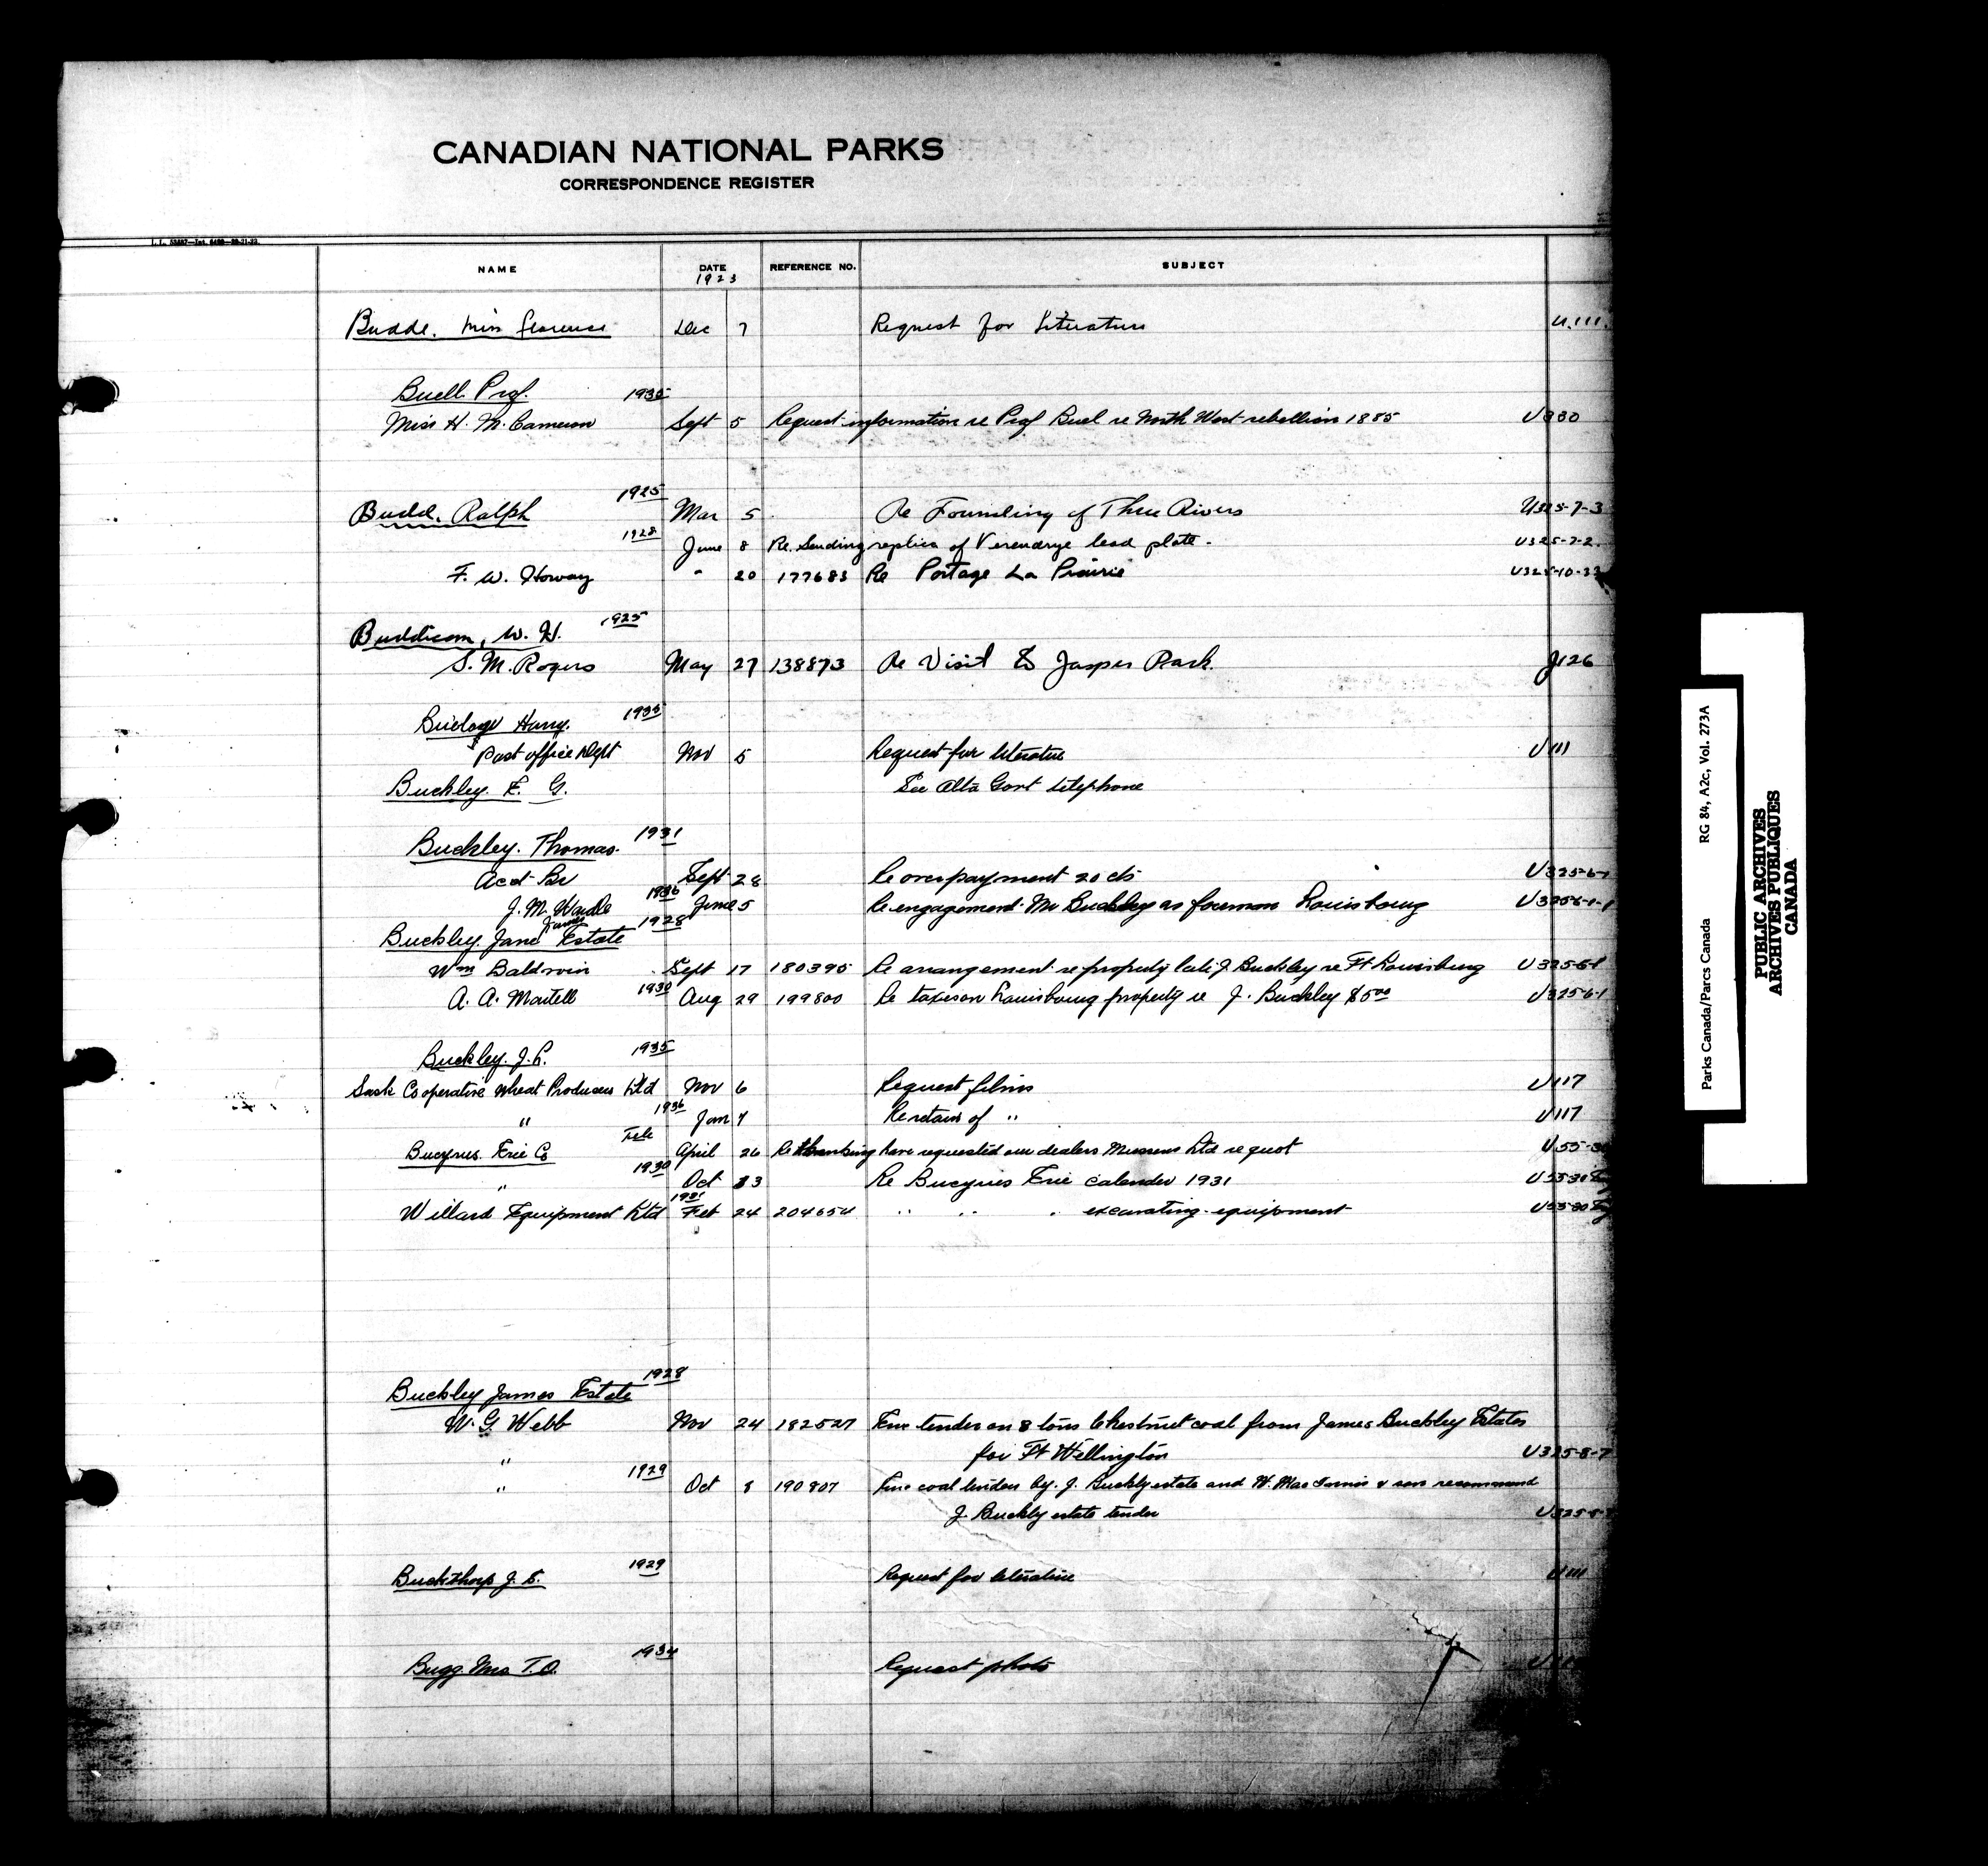 CANADIAN NATIONAL PARKS
CORRESPONDENCE REGISTER
NAME DATE REFERENCE NO. SUBJECT
1923
Budde. Miss Florence Dec 7 Request for Literature U.111.
Buell Prof. 1935
Miss H. M. Cameron Sept 5 Request information re Prof Buel re North West rebellion 1885 U330
1925
Budd. Ralph Mar 5 Re Founding of Three Rivers U325-7-3
1928 June 8 Re. Sending replica of Verendrye lead plate - U325-7-2.
F. W. Howay " 20 177683 Re Portage La Prairie U325-10-33
Buddicom, W. H. 1925
S. M. Rogers May 27 138873 Re Visit to Jasper Park. J126
Harry. 1935
Post office Dept Nov 5 Request for literature U111
Buckley. E. G. See Alta Govt telephone
Buckley. Thomas. 1931
Acct Br Sept 28 Re overpayment 20 cts U325-6-1
J. M. Wardle 1936 June 5 Re engagement Mr Buckley as foreman Louisbourg U3256-1-1
James
Buckley. Jane Estate 1928
Wm Baldwin Sept 17 180395 Re arrangement re property late J Buckley re Ft Louisburg U325-6-1
A. A. Martell 1930 Aug 29 199800 Re taxes on Louisbourg property re J. Buckley $5.00 U325-6-1
Buckley. J. 1935
Sask Cooperative Wheat Producers Ltd Nov 6 Request films U117
" 1936 Jan 7 Re return of " U117
Feb
Bucyrus. Erie Co April 26 Re have requested our dealers Mussens Ltd re quot U.55-30
" 1930 Oct 23 Re Bucyrus Erie Calender 1931 U55-30
1931
Willard Equipment Ltd Feb 24 204654 " " " excavating equipment U55-30
Buckley James Estate 1928
W. G. Webb Nov 24 182527 Enc tender on 8 tons Chestnut coal from James Buckley Estates
" for Ft Wellington U325-8-7
" 1929 Oct 8 190807 Enc coal tenders by. J. Buckly estate and H. & son recommend
J. Buckly estate tender U325-8-7
Buckthorp J. 1929 Request for literature U111
Bugg Mrs T. O. 1934 Request photo
Parks Canada/Parcs Canada RG 84, A2c, Vol. 273A
PUBLIC ARCHIVES
ARCHIVES PUBLIQUES
CANADA